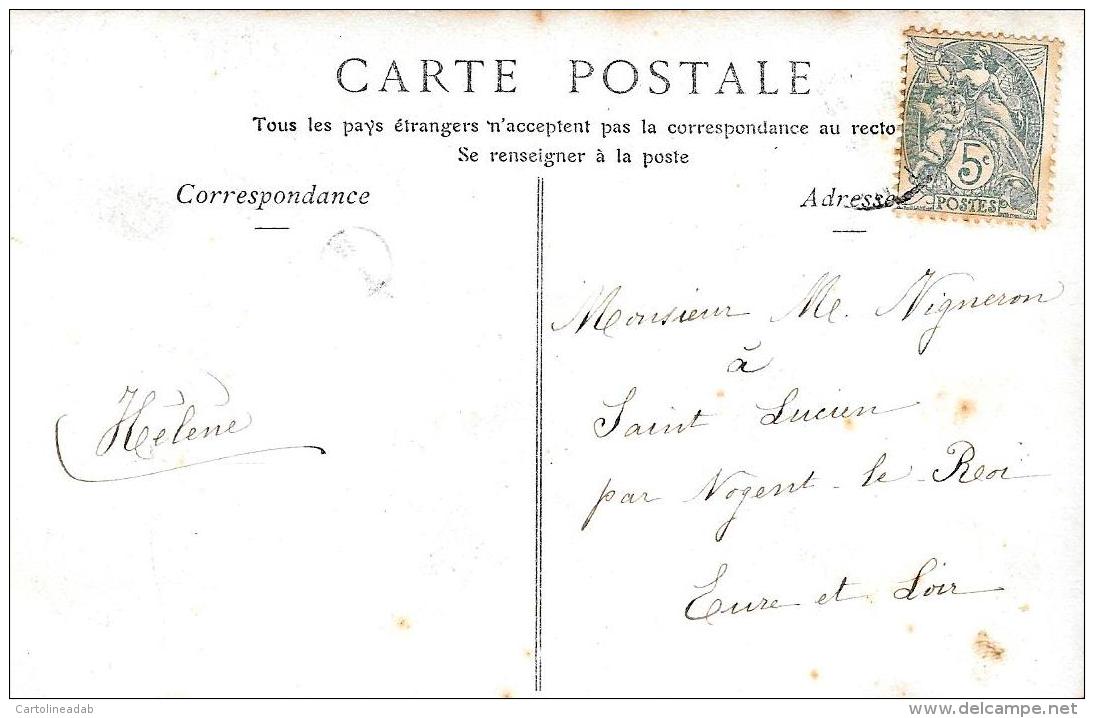 CARTE POSTALE
Tous les pays étrangers n'acceptent pas la correspondance au recto
Se renseigner à la poste
Correspondance
Adresse
5c
POSTES
Hélène
Monsieur Me. Vigneron
à
Saint Lucien
par Nogent-le-Roi
Eure et Loir
Cartolineadab
www.delcampe.net